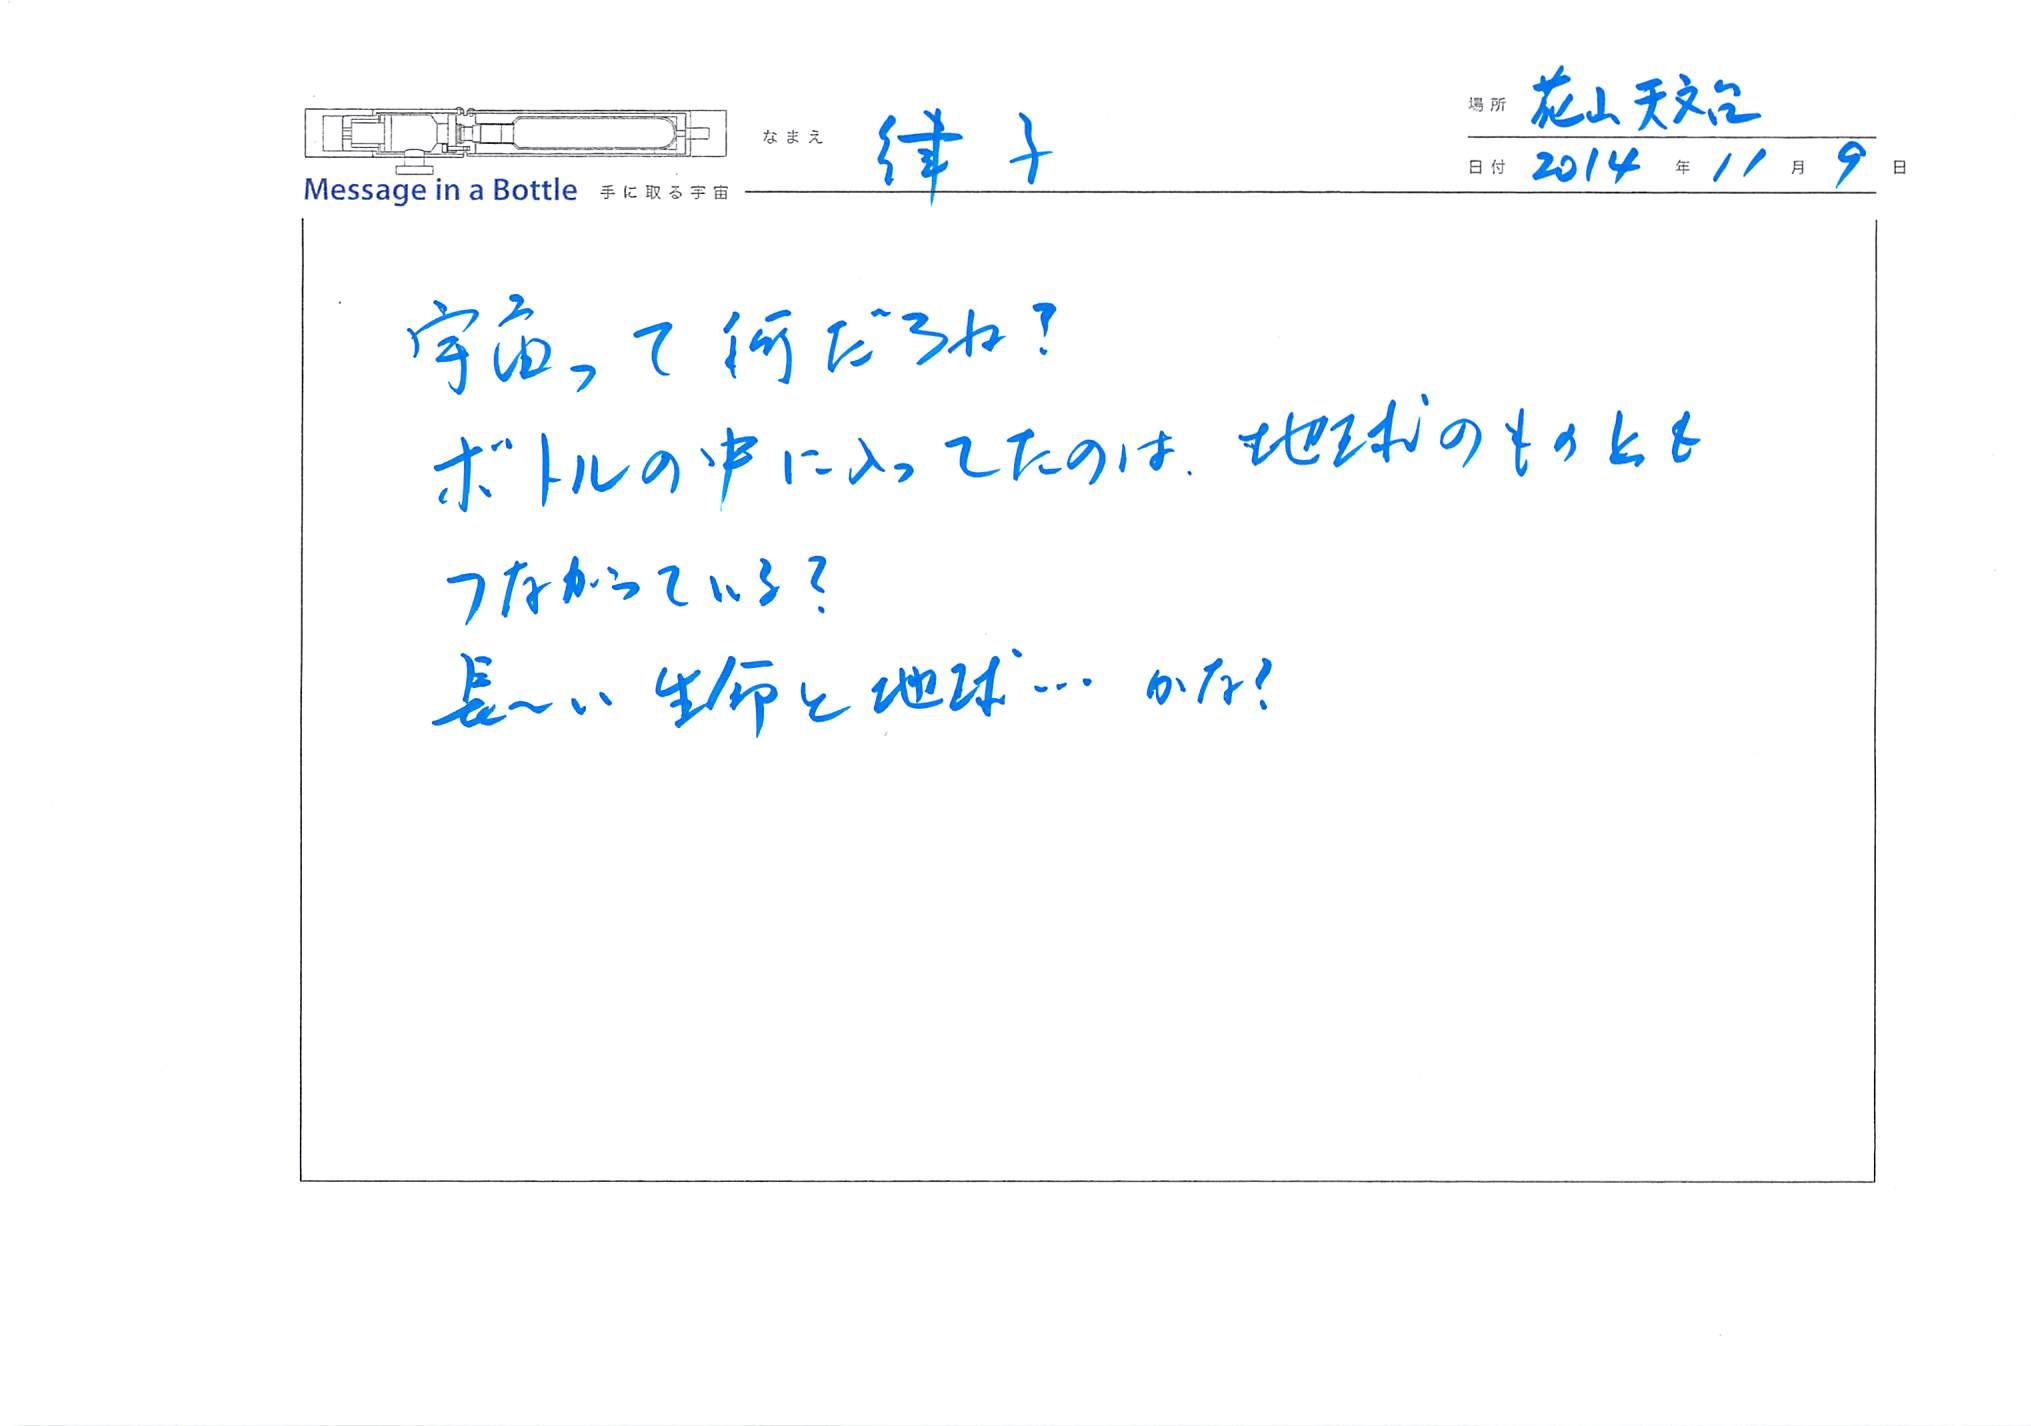 場所 花山天文台
なまえ 律子
日付 2014 年 11 月 9 日
Message in a Bottle 手に取る宇宙
宇宙って何だろね?
ボトルの中に入ってたのは、地球のものとも
つながっている?
長〜い生命と地球…かな?